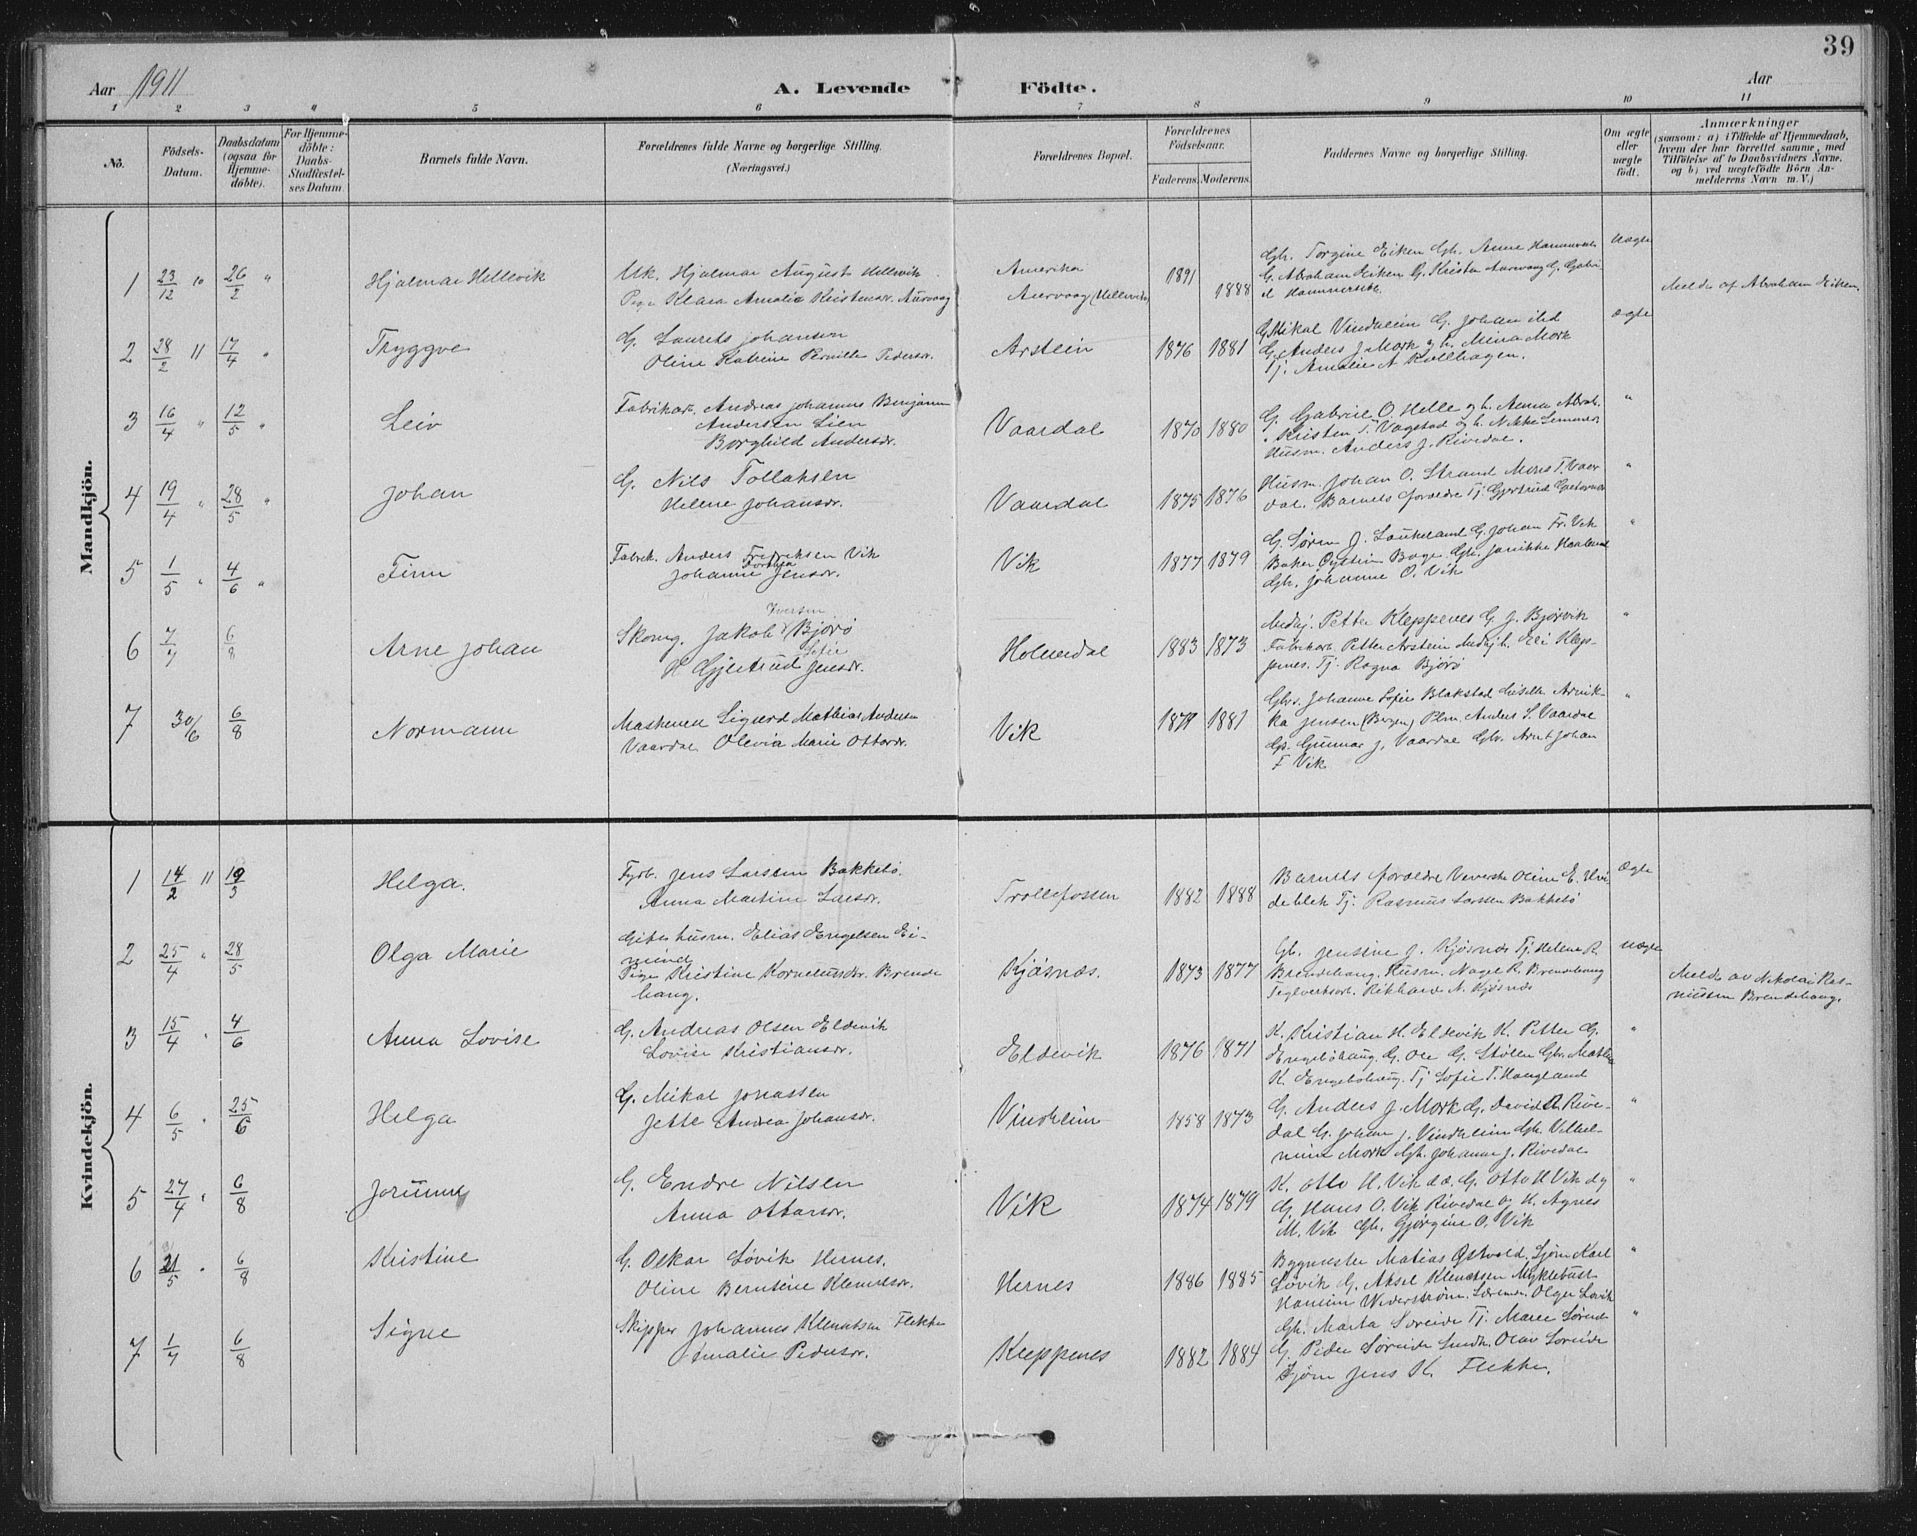 39
Aar 1911 A. Levende Födte. Aar
1 2 3 4 5 6 7 8 9 10 11
Nô. Födsels-Datum. Daabsdatum (ogsaa for Hjemmedöbte). For Hjemmedöbte: Daabs-Stadfæstelses Datum Barnets fulde Navn. Forældrenes fulde Navne og borgerlige Stilling. (Næringsvei.) Forældrenes Bopæl. Forældrenes Födselsaar. Faderens. Moderens. Faddernes Navne og borgerlige Stilling. Om ægte eller uægte födt. Anmærkninger (saasom: a) i Tilfælde af Hjemmedaab, hvem der har forrettet samme, med Tilföielse af to Daabsvidners Navne. og b) ved uægtefödte Börn Anmelderens Navn m. V.)
Mandkjön.
1 23/12 10 26/2 " Hjalmar Hellevik
Uk. Hjalmar August Hellevik
Pige Klara Amalie Kristensdr. Aurvaag
Amerika
Aurvaag (Hellevik)
1891 1888
Gh. Torgine Eiken Gh. Anne Hammerset
G. Abraham Eiken G. Kristen Aurvaag G. Gabri
el Hammerseth.
Uægte
Meldt af Abraham Eiken.
2 28/2 11 17/4 " Tryggve
G. Laurits Johansen
Oline Katrine Pernille Pedersdr.
Arstein 1876 1881
G. Mikal Vindheim G. Johan ibd
G. Anders J Mork g h. Mina Mork
Tj. Amalie A
ægte
3 16/4 " 12/5 " Leiv
Fabrikar. Andreas Johannes Benjamin
Andersen Lien
Borghild Andersdr.
Vaardal 1870 1880
G. Gabriel O. Helle og h. Anna Abrah.
Kristen T. Vagstad og h. Nikka
Husm. Anders J. Rivedal.
"
4 19/4 " 28/5 " Johan
G. Nils Tollaksen
Helene Johansdr.
Vaardal 1875 1876
Husm. Johan O. Strand Mons T. Vaar
dal. Barnets forældre Tj. Gjertrud
"
5 1/5 " 4/6 " Finn
Fabrik. Anders Fredriksen Vik
Johanne Forthea Jensdr.
Vik 1877 1879
G. Søren J. Laukeland G. Johan Fr. Vik
Baker Øystein Gh. Janikke
Gh. Johanne O. Vik
"
6 7/7 6/8 Arne Johan
Skomg. Jakob Iversen Bjørø
H Gjertrud Sofie Jensdr.
Holmedal 1883 1873
Petter Kleppenes G. J. Bjørvik
Fabrikarb. Petter Arstein Eli Klep-
penes. Tj. Ragna Bjørø
"
7 30/6 6/8 Normann
Maskenen Sigurd Mathias Andersen
Vaardal Olevia Marie Ottarsdr.
Vik 1879 1881
Gbr. Johanne Sofie Blakstad
ka Jensen (Bergen) Plm. Anders S. Vaardal
Gs. Gunnar J. Vaardal Gbr. Arnt Johan
F Vik
"
Kvindekjön.
1 14/2 11 19/3 Helga.
Jens Larsen Bakkebø.
Anna Martine Larsdr.
Trollefossen 1882 1888
Barnets forældre Veverske Oline E. Hvi
deblik Tj. Rasmus Larsen Bakkebø
Ægte
2 25/4 " 28/5 Olga Marie
Gift husm. Elias Engelsen Ei-
mind
Pige Kristine Korneliusdr. Brende
hang.
Kjøsnæs. 1873 1877
Gh. Jensine J. Kjøsnæs Tj. Helene R.
Brendehang. Husm. Nagel R. Brendehang
Teglverksarb. Rikhard N. Kjøsnæs
uægte
Meldt av Nikolai Ras-
mussen Brendehang.
3 15/4 " 4/6 Anna Lovise
G. Andreas Olsen Eldevik
Lovise Kristiansdr.
Eldevik 1876 1871
K. Kristian H. Eldevik K. Petter G.
Engebøhaug. G. Ole G. Stølen Gbr. Mathea
K. Engebøhaug. Tj Sofie T. Haugland
"
4 6/5 " 25/6 Helga
G. Mikal Jonassen
Jette Andrea Johansdr.
Vindheim 1858 1873
G. Anders J. Mork G. David A. Rive-
dal G. Johan J. Vindheim Gh. Vilhel-
mine Mork Gh. Johanne J. Rivedal
"
5 27/4 " 6/8 Jorunne
G. Endre Nilsen
Anna Ottarsdr.
Vik 1874 1879
K. Otto H. Vik d.æ. G. Otto H Vik d.y
G. Hans O. Vik Rivedal og K. Agnes
M. Vik Gh. Gjørgine O. Vik
"
6 21/5 " 6/8 Kristine
G. Oskar Løvik Hernes.
Oline Berntine Klemetsdr.
Hernes 1886 1885
Bygmester Matias Østvold. Sjøm Karl
Løvik G. Aksel Klemetsen Myklebust
Wederstrøm. Olger Løvik
"
7 1/7 6/8 Signe
Skipper Johannes Klemetsen Flekke
Amalie Pedersdr.
Kleppenes 1882 1884
Gh. Marta Søreide Tj. Marie Søreide
G. Peder Søreide Olav Søreide
Sjøm Jens K. Flekke.
"